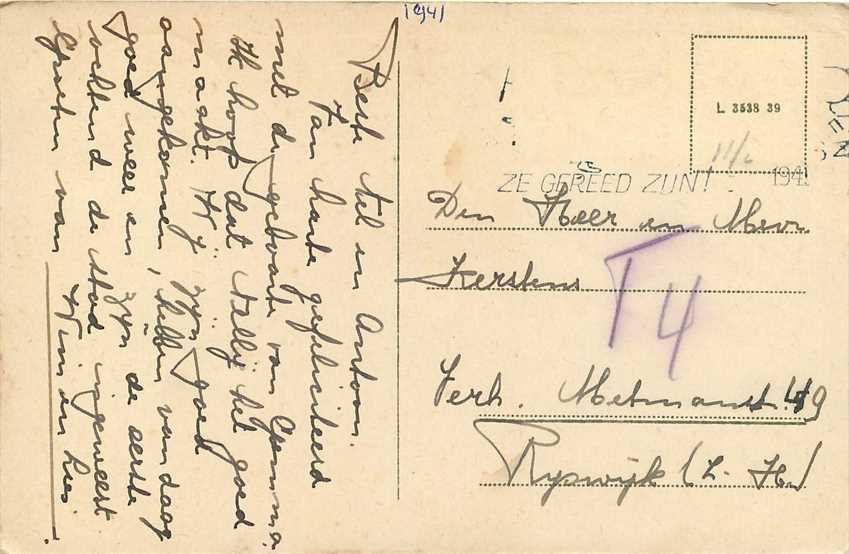 1941
Beste Nel en Antoon.
Van harte gefeliciteerd
met de geboorte van Gemma.
Ik hoop dat Nellij het goed
maakt. Wij zijn goed
aangekomen, hebben vandaag
goed weer en zijn de eerste
ochtend de stad ingeweest
Groeten van
Wim en Lies.
L 3538 39
11/6
ZE GEREED ZIJN! 1941
Den Heer en Mevr.
Kerstens
T 4
Verh. 49
Rijswijk (Z.-H.)